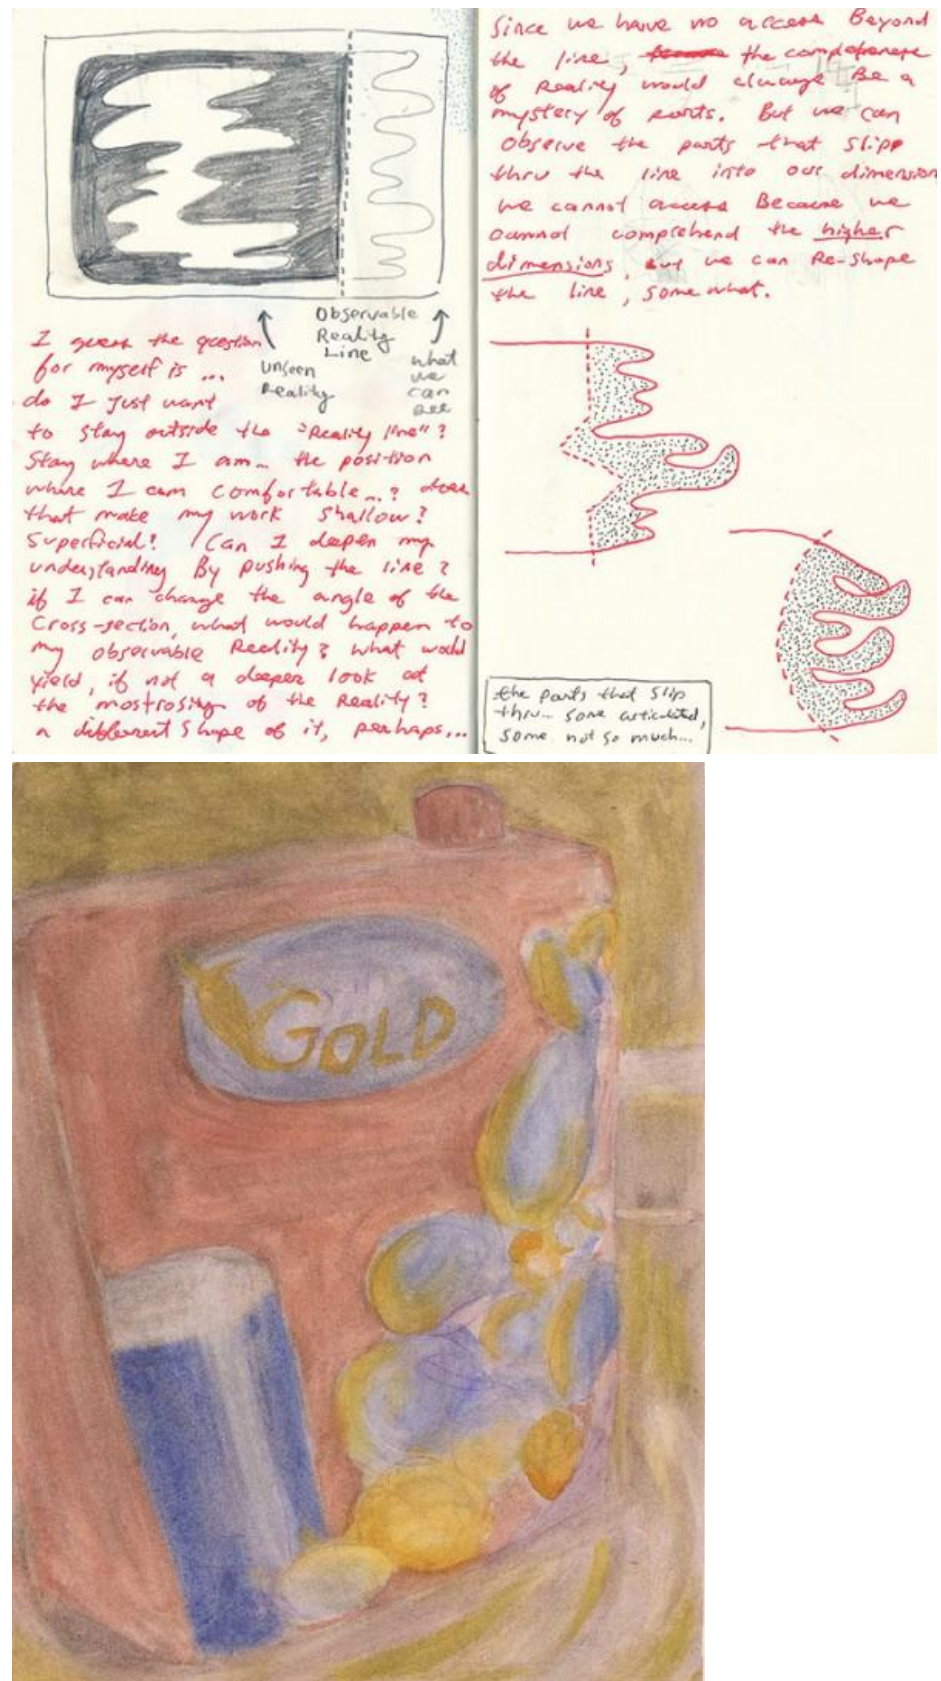 Observable
Reality
Line
unseen
Reality
what
we
can
see
I guess the question
for myself is ...
do I Just want
to stay outside the "Reality line"?
Stay where I am... the position
where I am comfortable...? does
that make my work shallow?
Superficial? Can I deepen my
understanding By pushing the line?
if I can change the angle of the
Cross-section, what would happen to
my observable Reality? what would
yield, if not a deeper look at
the mostrosity of the Reality?
a different Shape of it, perhaps...
Since we have no access Beyond
the line, the completeness
of Reality would always Be a
mystery of parts. But we can
observe the parts that slipp
thru the line into our dimension
we cannot access Because we
cannot comprehend the higher
dimensions, but we can Re-shape
the line, somewhat.
the parts that slip
thru... some articulated,
some not so much...
GOLD